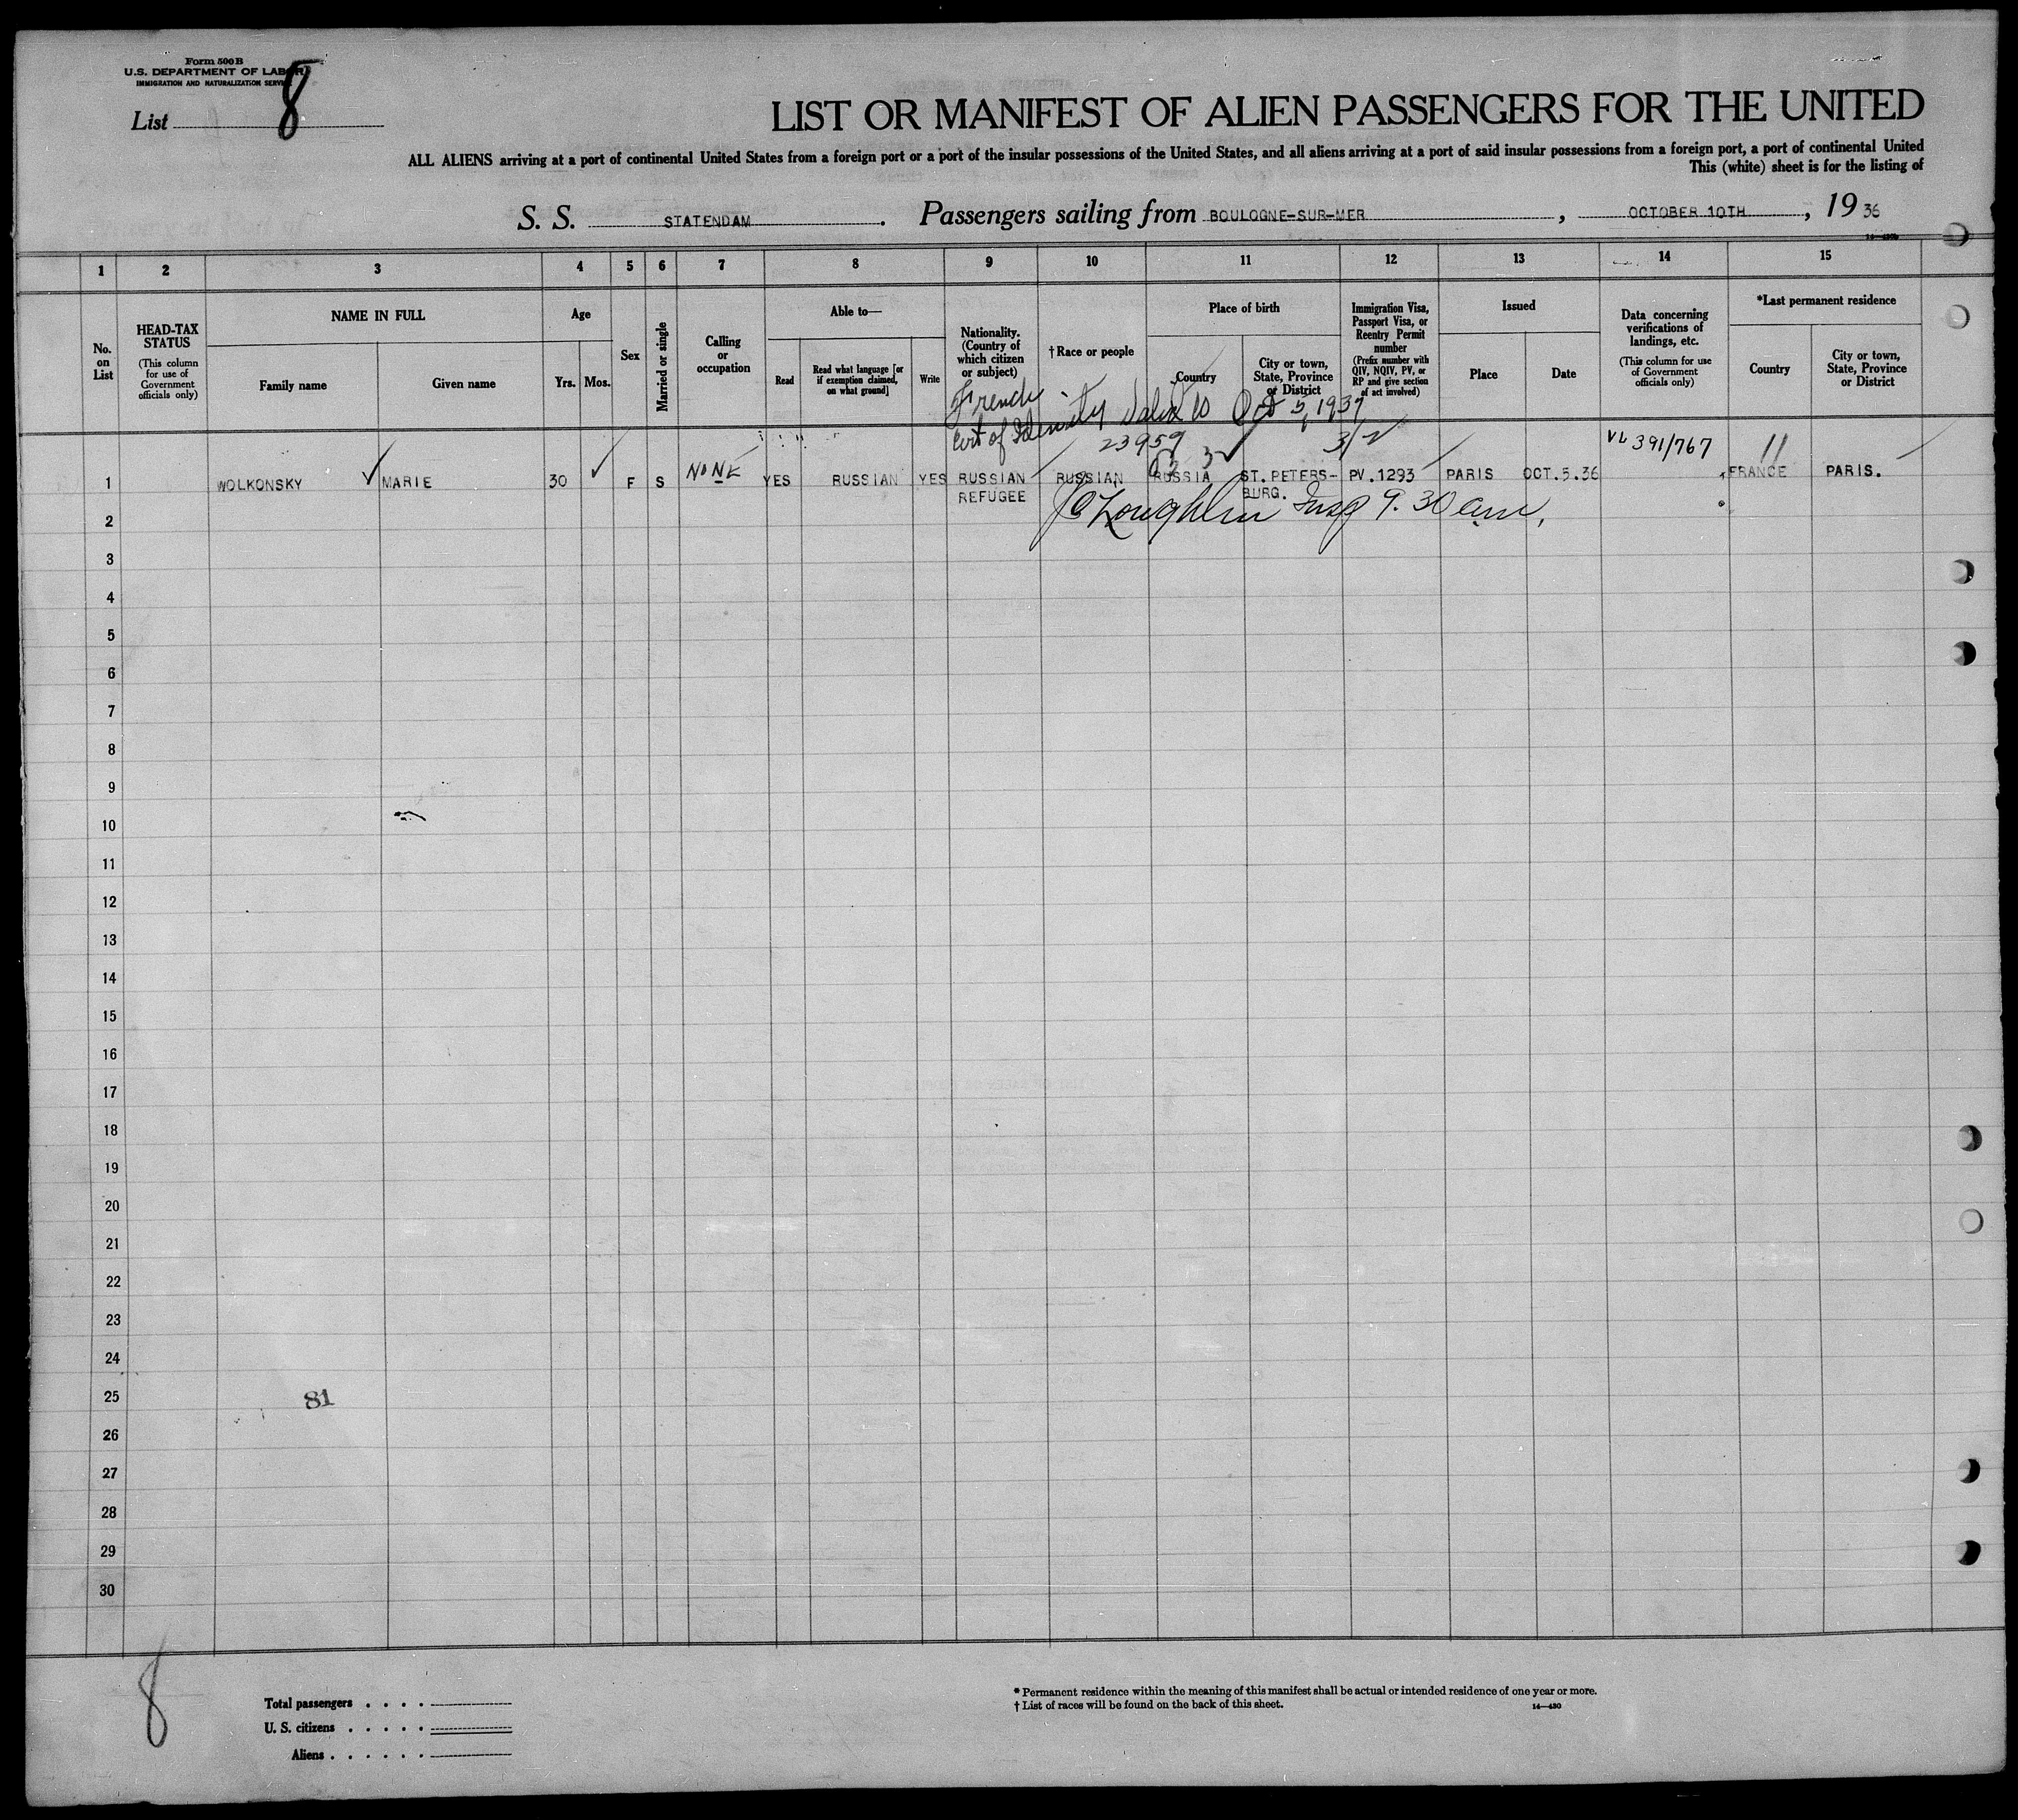 Form 500 B
U.S. DEPARTMENT OF LABOR
IMMIGRATION AND NATURALIZATION SERVICE
List 8
LIST OR MANIFEST OF ALIEN PASSENGERS FOR THE UNITED
ALL ALIENS arriving at a port of continental United States from a foreign port or a port of the insular possessions of the United States, and all aliens arriving at a port of said insular possessions from a foreign port, a port of continental United
This (white) sheet is for the listing of
S. S. STATENDAM. Passengers sailing from BOULOGNE-SUR-MER, OCTOBER 10TH, 1936
1 2 3 4 5 6 7 8 9 10 11 12 13 14 15
No. on List
HEAD-TAX STATUS
(This column for use of Government officials only)
NAME IN FULL
Family name
Given name
Age
Yrs. Mos.
Sex
Married or single
Calling or occupation
Able to—
Read
Read what language [or if exemption claimed, on what ground]
Write
Nationality. (Country of which citizen or subject)
† Race or people
Place of birth
Country
City or town, State, Province or District
Immigration Visa, Passport Visa, or Reentry Permit number
(Prefix number with QIV, NQIV, PV, or RP and give section of act involved)
Issued
Place
Date
Data concerning verifications of landings, etc.
(This column for use of Government officials only)
*Last permanent residence
Country
City or town, State, Province or District
French
Cert of Identity Valid to Oct 5, 1937
23959
3/2
VL 391/767
1 WOLKONSKY MARIE 30 F S NONE YES RUSSIAN YES RUSSIAN RUSSIAN RUSSIA ST. PETERS- PV.1293 PARIS OCT.5.36 FRANCE PARIS.
REFUGEE BURG.
Insp 9.30 am,
2
3
4
5
6
7
8
9
10
11
12
13
14
15
16
17
18
19
20
21
22
23
24
25 81
26
27
28
29
30
8
Total passengers . . . .
U. S. citizens . . . . .
Aliens . . . . . .
* Permanent residence within the meaning of this manifest shall be actual or intended residence of one year or more.
† List of races will be found on the back of this sheet.
14—430